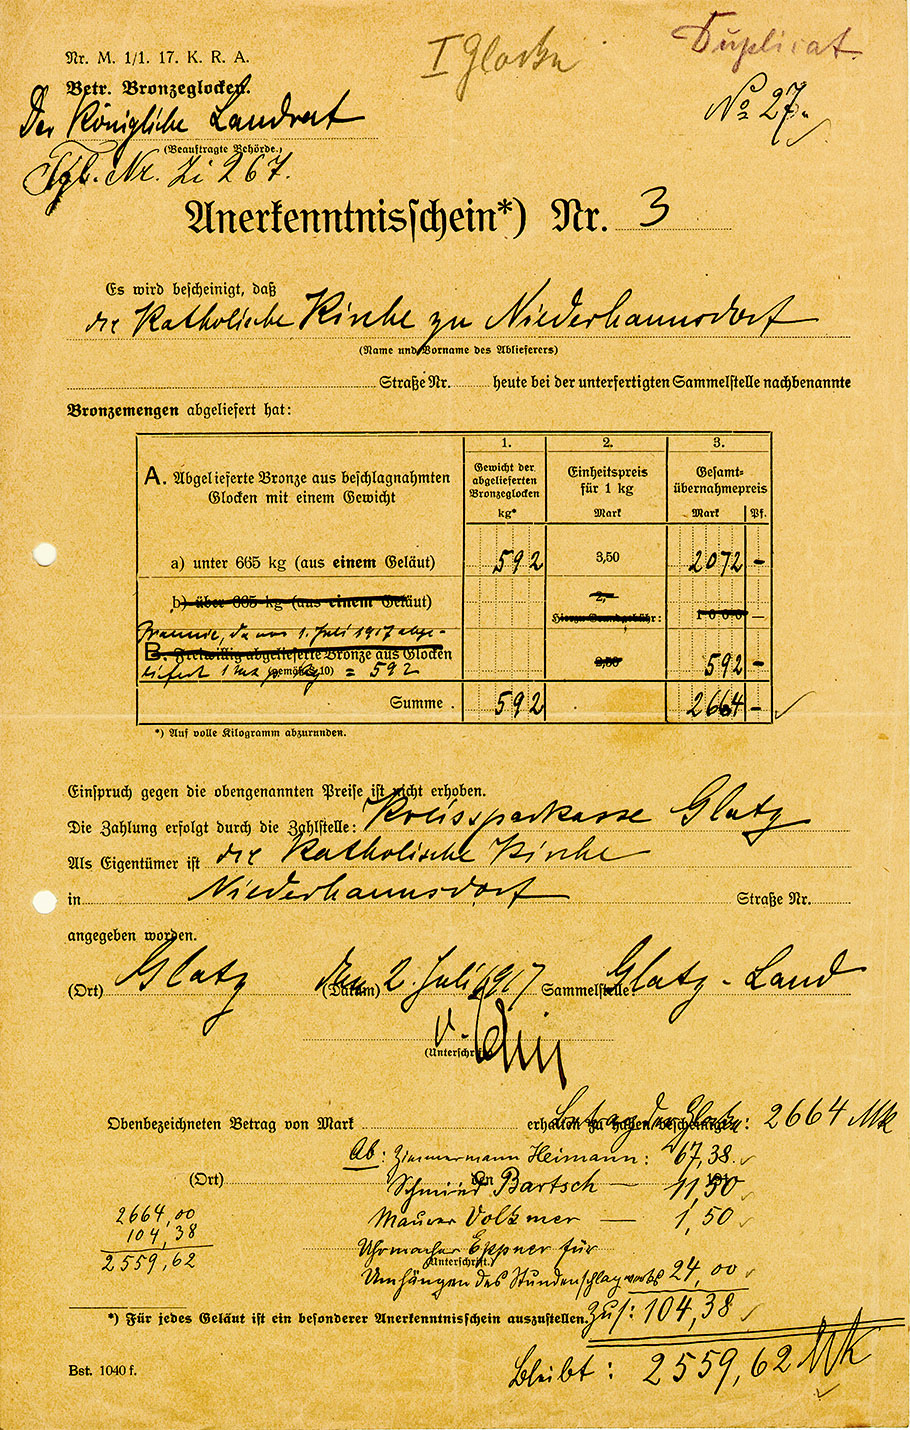 I Glocke
Duplicat.
Nr. M. 1/1. 17. K. R. A.
Betr. Bronzeglocken.
No 27.
Der Königliche Landrat
(Beauftragte Behörde.)
Tgb. Nr. Zi 267.
Anerkenntnisschein*) Nr. 3
Es wird bescheinigt, daß
die Katholische Kirche zu Niederhannsdorf
(Name und Vorname des Ablieferers)
Straße Nr. heute bei der unterfertigten Sammelstelle nachbenannte
Bronzemengen abgeliefert hat:
1. 2. 3.
A. Abgelieferte Bronze aus beschlagnahmten Glocken mit einem Gewicht
Gewicht der abgelieferten Bronzeglocken kg*
Einheitspreis für 1 kg Mark
Gesamtübernahmepreis Mark Pf.
a) unter 665 kg (aus einem Geläut) 592 3,50 2072 -
b) über 665 kg (aus einem Geläut) 2,- Hierzu Grundgebühr: 1000 —
Praemie, da vor 1. Juli 1917 abge-
B. Freiwillig abgelieferte Bronze aus Glocken 3,50 592 -
liefert 1 Mk p. kg = 592
(gemäß § 10)
Summe . 592 2664 -
*) Auf volle Kilogramm abzurunden.
Einspruch gegen die obengenannten Preise ist nicht erhoben.
Die Zahlung erfolgt durch die Zahlstelle: Kreissparkasse Glatz
Als Eigentümer ist die Katholische Kirche
in Niederhannsdorf Straße Nr.
angegeben worden.
(Ort) Glatz (Datum) den 2. Juli 1917 Sammelstelle: Glatz-Land
(Unterschrift)
Obenbezeichneten Betrag von Mark erhalten zu haben bescheinigt:
Betrag der Glocke: 2664 Mk
Ab: Zimmermann Heimann: 67,38.
(Ort) den 191
Schmied Bartsch — 11,50
2664,00
Maurer Volkmer — 1,50
104,38
Uhrmacher Eppner für
2559,62
(Unterschrift.)
Umhängen des Stundenschlagwerks 24,00
*) Für jedes Geläut ist ein besonderer Anerkenntnisschein auszustellen.
Zus: 104,38
Bst. 1040 f.
Bleibt: 2559,62 Mk